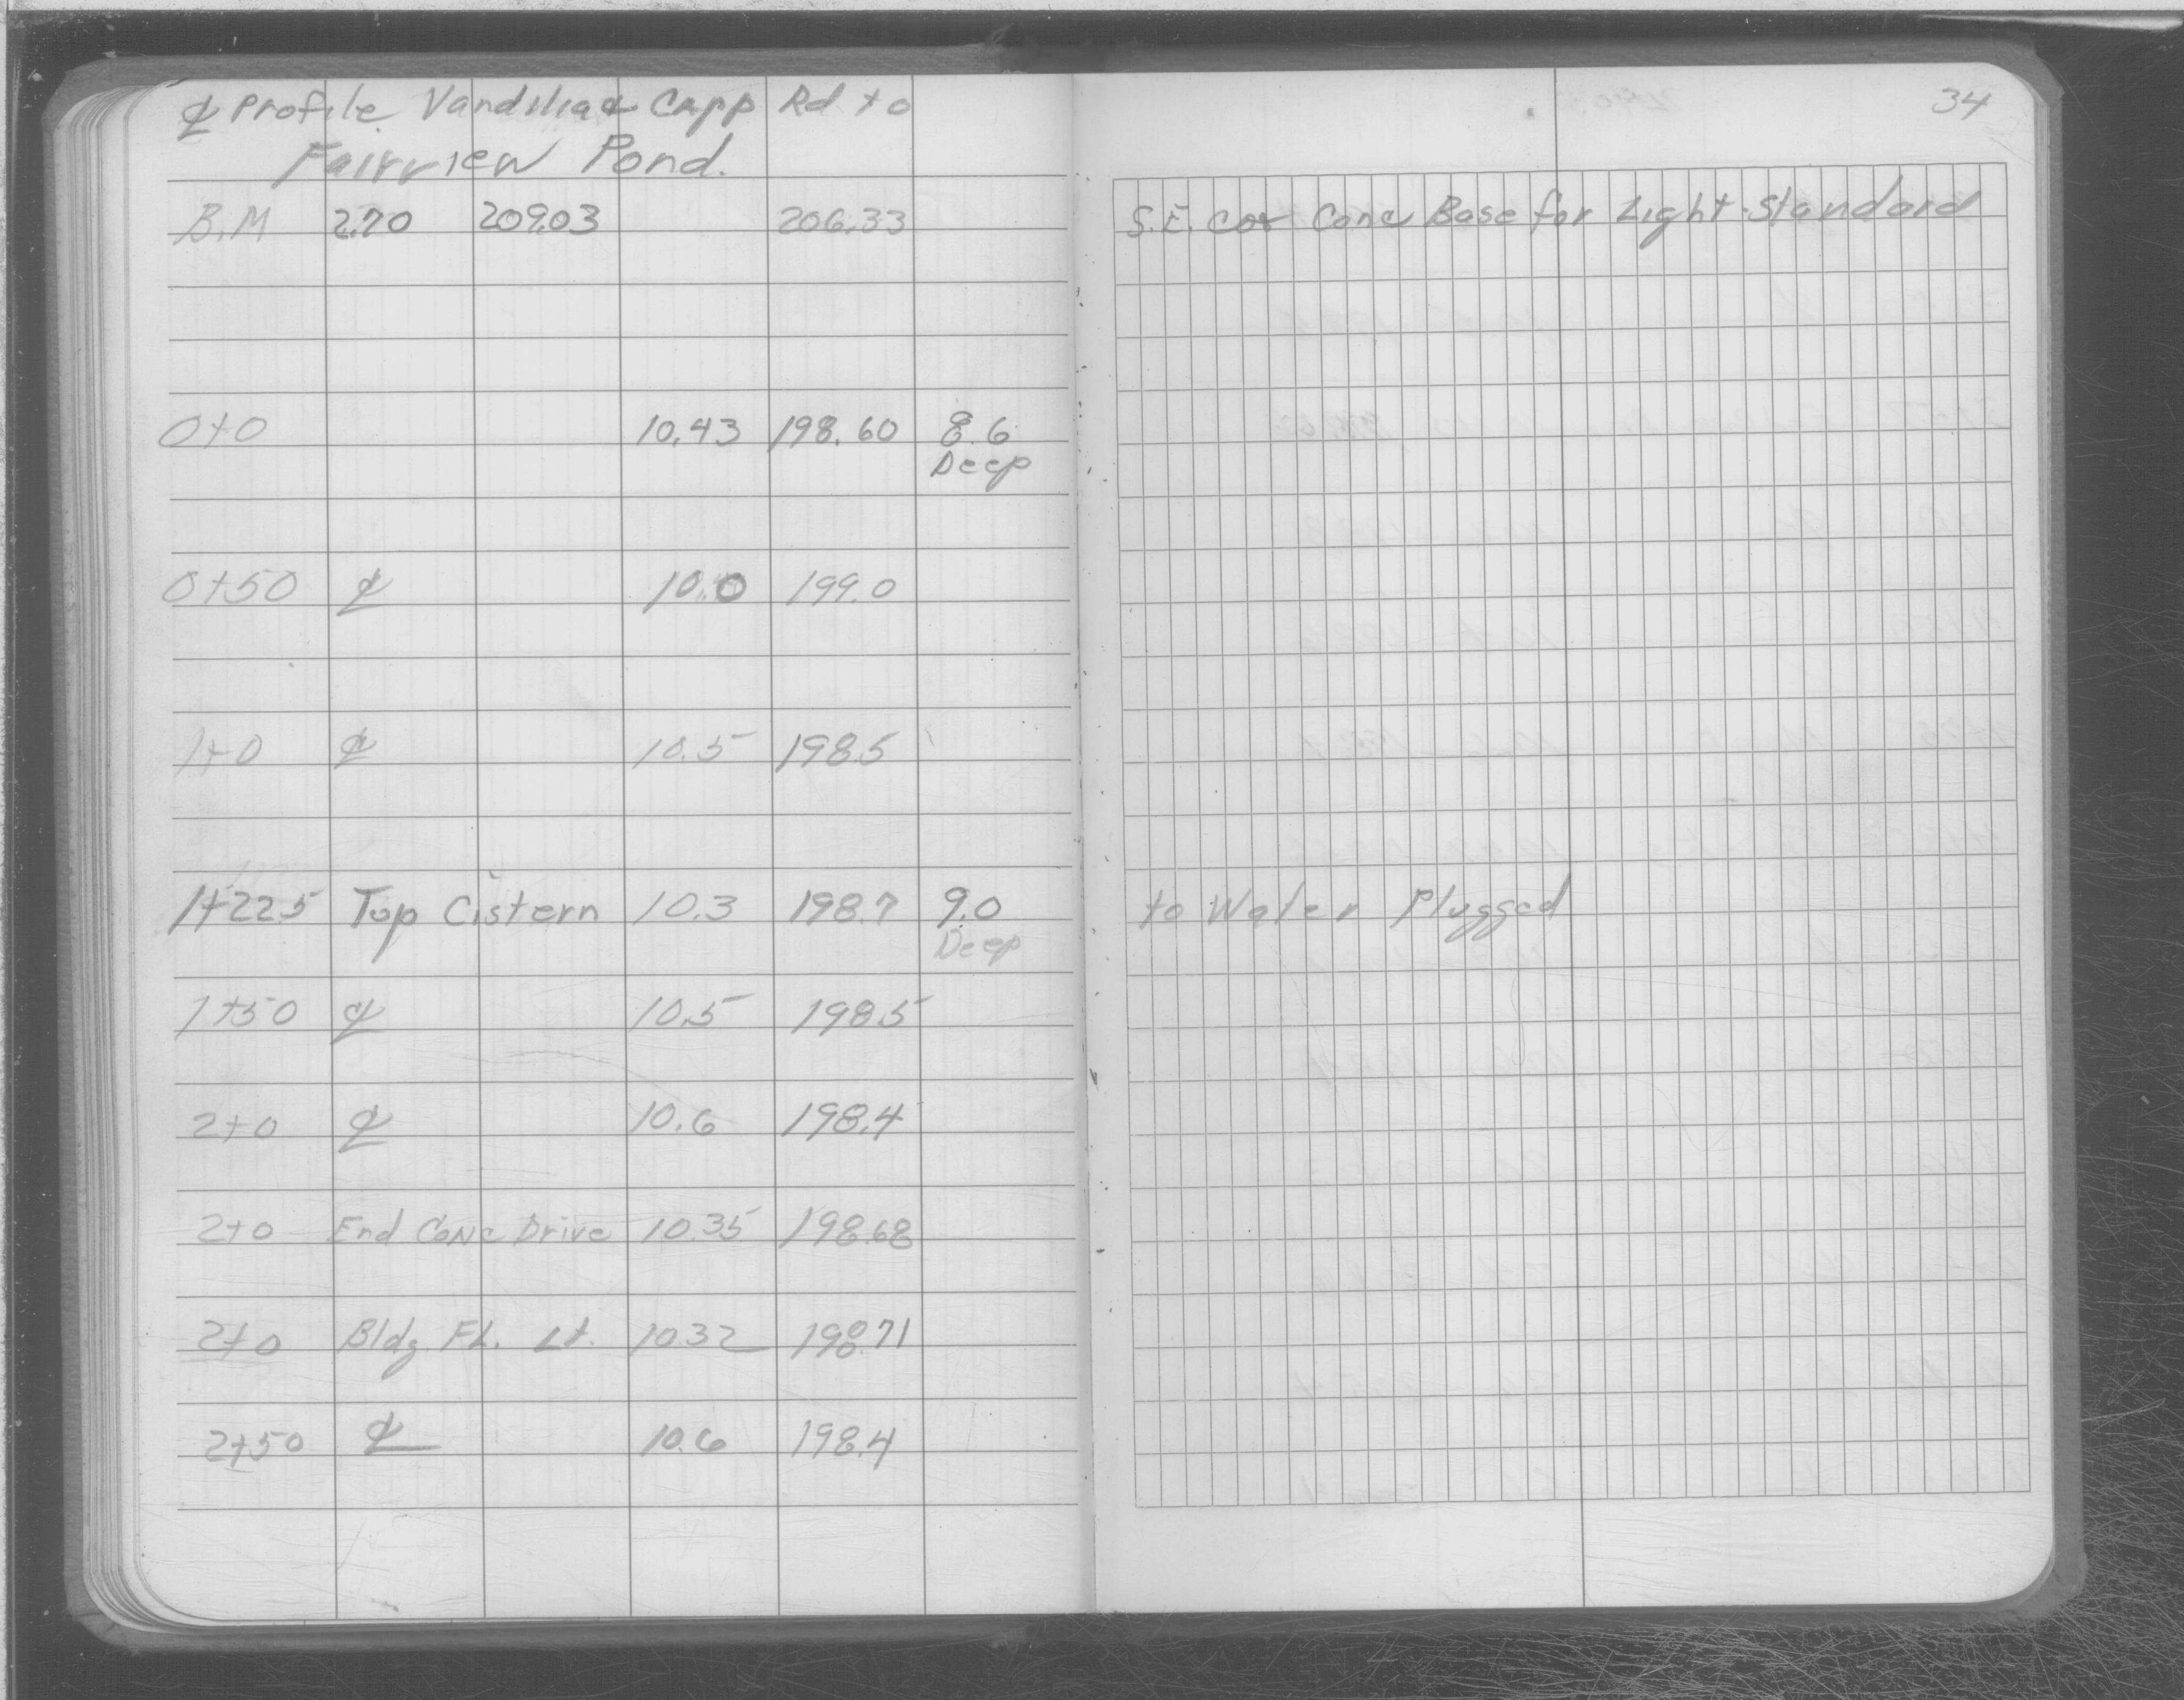 ℄ Profile Vandilia & Capp Rd to
Fairview Pond.
34
B.M 2.70 209.03 206.33 S.E. Cor Conc Base for Light Standard
0+0 10.43 198.60 8.6
Deep
0+50 ℄ 10.0 199.0
1+0 ℄ 10.5 198.5
1+22.5 Top Cistern 10.3 198.7 9.0 to Water Plugged
Deep
1+50 ℄ 10.5 198.5
2+0 ℄ 10.6 198.4
2+0 End Conc Drive 10.35 198.68
2+0 Bldg FL. Lt. 10.32 198.71
2+50 ℄ 10.6 198.4